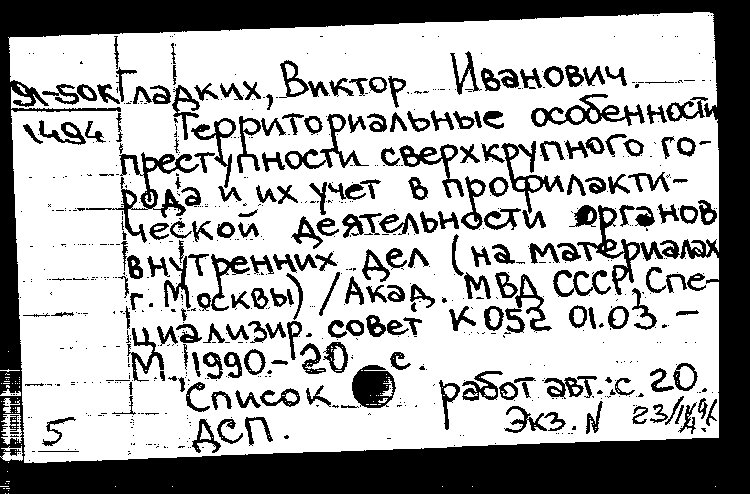 91-50К Гладких, Виктор Иванович.
1494 Территориальные особенности
преступности сверхкрупного го-
рода и их учет в профилакти-
ческой деятельности органов
внутренних дел (на материалах
г. Москвы) / Акад. МВД СССР, Спе-
циализир. совет К 052 01.03. –
М., 1990. – 20 с.
Список работ авт.: с. 20.
5 ДСП. Экз. N